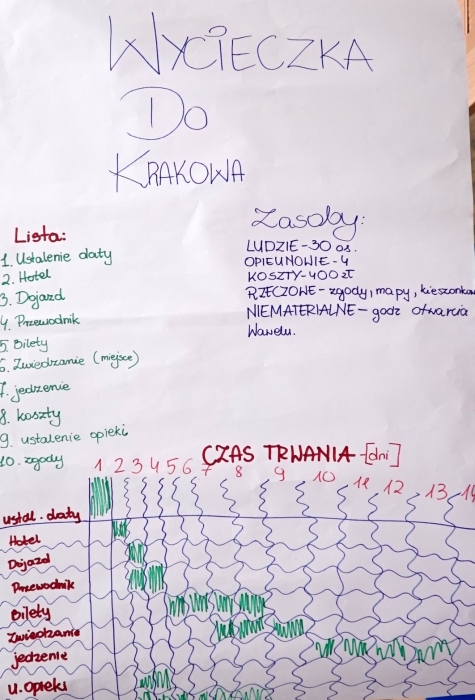 WYCIECZKA
DO
KRAKOWA
Lista:
1. Ustalenie daty
2. Hotel
3. Dojazd
4. Przewodnik
5. Bilety
6. Zwiedzanie (miejsce)
7. jedzenie
8. koszty
9. ustalenie opieki
10. zgody
Zasoby:
LUDZIE - 30 os.
OPIEUNOWIE - 4
KOSZTY - 400 zł
RZECZOWE - zgody, mapy, kieszonkow
NIEMATERIALNE - godz otwarcia
Wawelu.
CZAS TRWANIA [dni]
1 2 3 4 5 6 7 8 9 10 11 12 13 14
ustal. daty
Hotel
Dojazd
Przewodnik
Bilety
Zwiedzanie
jedzenie
u. opieki